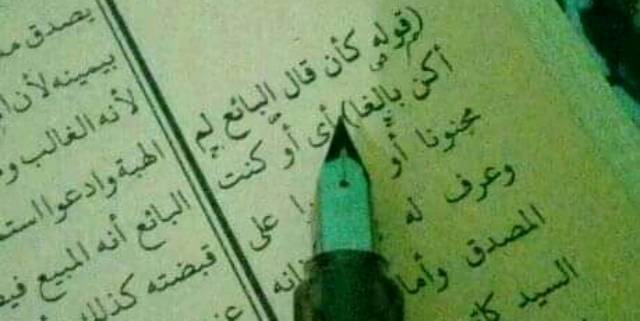 (قوله كأن قال البائع لم
أكن بالغا) أى أو كنت
مجنونا أو
وعرف له على
المصدق وأما
السيد
يصدق
بيمينه لأن
لأنه الغالب
الهبة وادعوا
البائع أنه المبيع
قبضته كذلك